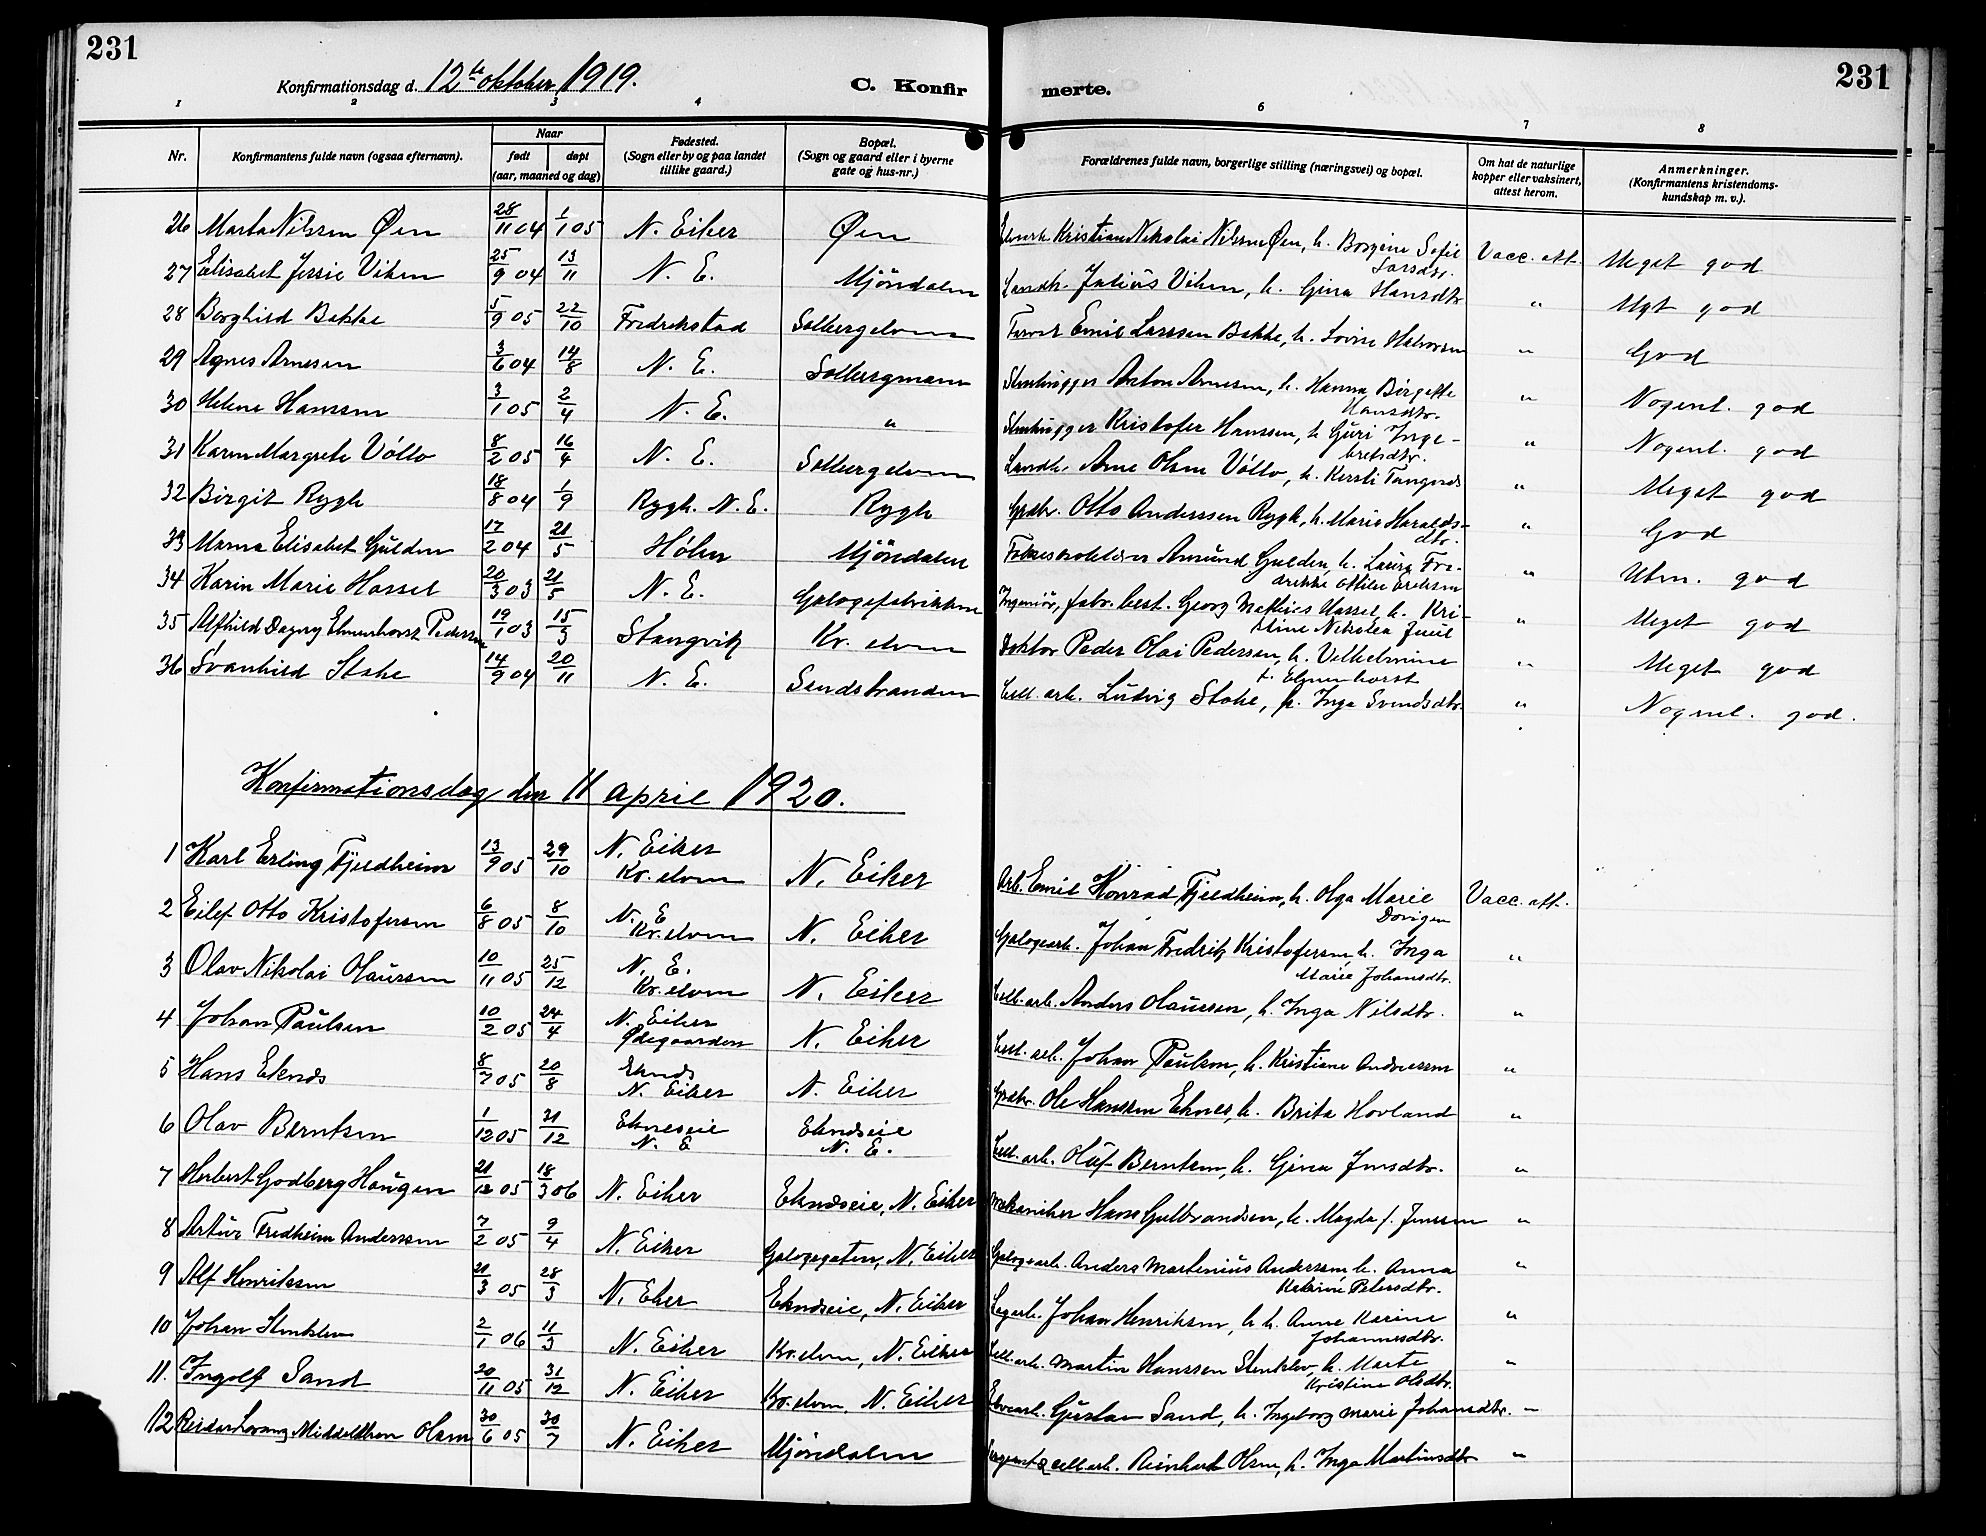 231
231
Konfirmationsdag d. 12te oktober 1919.
C. Konfir
merte.
1 2 3 4 6 7 8
Nr.
Konfirmantens fulde navn (ogsaa efternavn).
Naar
født døpt
(aar, maaned og dag)
Fødested.
(Sogn eller by og paa landet
tillike gaard.)
Bopæl.
(Sogn og gaard eller i byerne
gate og hus-nr.)
Forældrenes fulde navn, borgerlige stilling (næringsvei) og bopæl.
Om hat de naturlige
kopper eller vaksinert,
attest herom.
Anmerkninger.
(Konfirmantens kristendoms-
kundskap m. v.).
26 Marta Nilssen Øen 28/11 04 1/1 05 N. Eiker Øen Kristian Nikolai Nilssen Øen, h. Borgine Sofie
Larsdtr. Vacc. att. Meget god
27 Elisabet Jessie Viken 25/9 04 13/11 N. E. Mjöndalen Landh. Julius Viken, h. Gina Hansdtr " Mgt god
28 Borghild Bakke 5/9 05 22/10 Fredrekstad Solbergelven Emil Larssen Bakke, h. Lovise Halvorsen " God
29 Agnes Arnesen 3/6 04 14/8 N. E. Solbergmoen Stenhugger Anton Arnesen, h. Hanna Birgitte
Hansdtr. " Nogenl. god
30 Helene Hanssen 3/1 05 2/4 N. E. " Stenhugger Kristofer Hanssen, h. Guri Inge-
bretsdtr. " Nogenl. god
31 Karen Margrete Vóllo 8/2 05 16/4 N. E. Solbergelven Landh. Arne Olsen Vóllo, h. Kersti Tangerds " Meget god
32 Birgit Rygh 18/8 04 1/9 Rygh. N. E. Rygh Grdbr. Otto Anderssen Rygh, h. Marie Haralds-
dtr. " God
33 Marna Elisabet Gulden 17/2 04 21/5 Hólen Mjöndalen Amund Gulden, h. Laura Fre-
drikke Ottilie Eriksen " Utm. god
34 Karin Marie Hassel 20/3 03 21/5 N. E. Galogefabrikken Ingeniör, fabr. best. Georg Mathias Hassel, h. Kri-
stine Nikolea Juul " Meget god
35 Alfhild Dagny Elmenhorst Pedersen 19/1 03 15/3 Stangvik Kr. elven Doktor Peder Olai Pedersen, h. Vilhelmine
f. Elmenhorst " Meget god
36 Svanhild Stake 14/9 04 20/11 N. E. Sandstranden Cell. arb. Ludvig Stake, h. Inga Svendsdtr. " Nogenl. god.
Konfirmationsdag den 11 april 1920.
1 Karl Erling Fjeldheim 13/9 05 29/10 N. Eiker
Kr. elven N. Eiker Arb. Emil Konrad Fjeldheim, h. Olga Marie
Dorigen Vacc. att.
2 Eilef Otto Kristofersen 6/8 05 8/10 N. E
Kr. elven N. Eiker Galogearb. Johan Fredrik Kristofersen, h. Inga
Marie Johansdtr. "
3 Olav Nikolai Olaussen 10/11 05 25/12 N. E.
Kr. elven N. Eiker Cell. arb. Anders Olaussen, h. Inga Nilsdtr. "
4 Johan Paulsen 10/2 05 24/4 N. Eiker
Ödegaarden N. Eiker Cell. arb. Johan Paulsen, h. Kristiane Andreassen "
5 Hans Eknes 8/7 05 20/8 Eknes
N. Eiker N. Eiker Grdbr. Ole Hanssen Eknes, h. Brita Hovland "
6 Olav Berntsen 1/12 05 31/12 Ekneseie
N. E Ekneseie
N. E. Cell. arb. Oluf Berntsen, h. Gina Jensdtr. "
7 Herbert Godberg Haugen 21/12 05 18/3 06 N. Eiker Ekneseie, N. Eiker Mekaniker Hans Gulbrandsen, h. Magda f. Jenssen "
8 Artur Fredheim Anderssen 7/2 05 9/4 N. Eiker Galogegaten, N. Eiker Galogearb. Anders Martinius Anderssen h. Anna
Katrine Petersdtr. "
9 Alf Henriksen 21/3 05 28/3 N. Eker Ekneseie, N. Eiker Sagarb. Johan Henriksen, h. h. Anne Karine
Johannesdtr. "
10 Johan Stenklev 2/1 06 11/3 N. Eiker Kr. elven, N. Eiker Cell. arb. Martin Hanssen Stenklev, h. Marte
Kristine Olsdtr. "
11. Ingolf Sand 20/11 05 31/12 N. Eiker Kr. elven, N. Eiker Gustav Sand, h. Ingeborg Marie Johansdtr. "
12 Reidar Lorang Middelthon Olsen 30/6 05 30/7 N. Eiker Mjöndalen cell. arb. Reinhart Olsen, h. Inga Martinsdtr "